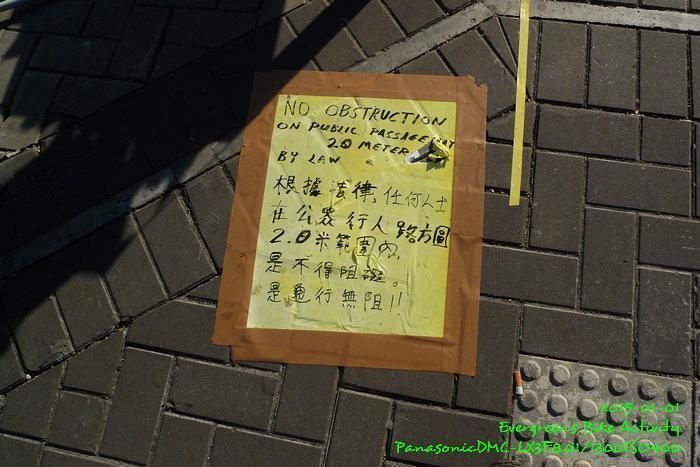 NO OBSTRUCTION
ON PUBLIC PASSAGE
2.0 METER
BY LAW
根據法律,任何人士
在公眾行人路方圓
2.0米範圍內,
是不得阻礙。
是通行無阻!!
2015-01-01
Evergreen's Bike Activity